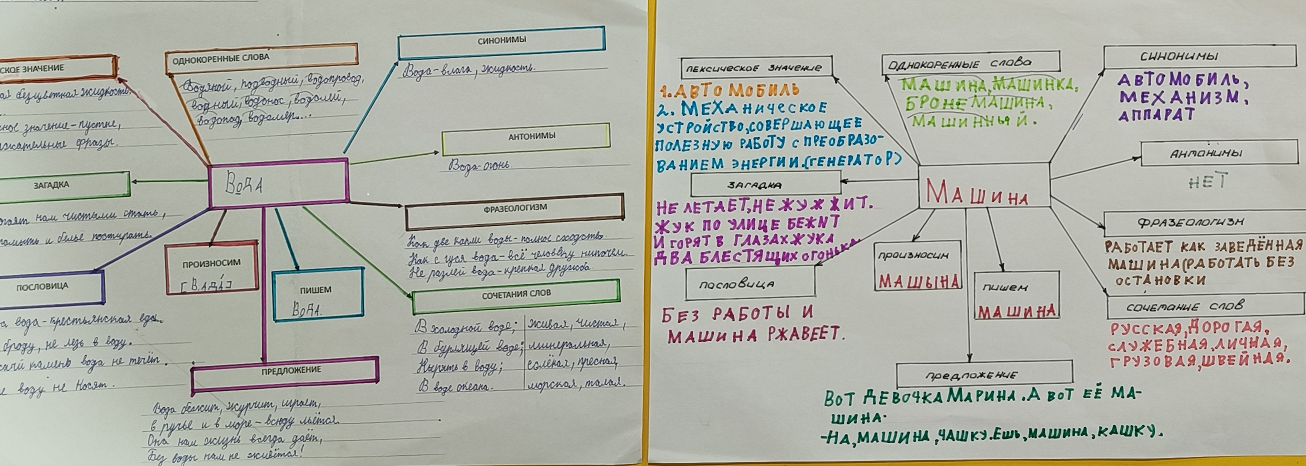 СКОЕ ЗНАЧЕНИЕ
ая безцветная жидкость.
сное значение-пустые,
жательные фразы.
ОДНОКОРЕННЫЕ СЛОВА
Водяной, подводный, водопровод,
водный, водонос, водолей,
водопад, водомер...
СИНОНИМЫ
Вода-влага, жидкость.
АНТОНИМЫ
Вода-огонь
ЗАГАДКА
огает нам чистыми стать,
помыть и бельё постирать.
ВОДА
ФРАЗЕОЛОГИЗМ
Как две капли воды-полное сходство
Как с гуся вода-всё человеку нипочём.
Не разлей вода-крепкая дружба
ПРОИЗНОСИМ
[ВАДА]
ПИШЕМ
ВОДА
ПОСЛОВИЦА
а вода-крестьянская еда.
броду, не лезь в воду.
камень вода не течёт.
е воду не носят.
СОЧЕТАНИЯ СЛОВ
В холодной воде; живая, чистая,
В бурлящей воде; минеральная,
Нырять в воду; солёная, пресная,
В воде океана. морская, талая.
ПРЕДЛОЖЕНИЕ
Вода бежит, журчит, играет,
в ручье и в море-всюду льётся.
Она нам жизнь всегда даёт,
Без воды нам не живётся!
ЛЕКСИЧЕСКОЕ ЗНАЧЕНИЕ
1. АВТОМОБИЛЬ
2. МЕХАНИЧЕСКОЕ
УСТРОЙСТВО, СОВЕРШАЮЩЕЕ
ПОЛЕЗНУЮ РАБОТУ С ПРЕОБРАЗО-
ВАНИЕМ ЭНЕРГИИ. (ГЕНЕРАТОР)
ОДНОКОРЕННЫЕ СЛОВА
МАШИНА, МАШИНКА,
БРОНЕМАШИНА,
МАШИННЫЙ.
СИНОНИМЫ
АВТОМОБИЛЬ,
МЕХАНИЗМ,
АППАРАТ
АНТОНИМЫ
НЕТ
ЗАГАДКА
НЕ ЛЕТАЕТ, НЕ ЖУЖЖИТ.
ЖУК ПО УЛИЦЕ БЕЖИТ
И ГОРЯТ В ГЛАЗАХ ЖУКА
ДВА БЛЕСТЯЩИХ ОГОНЬКА
МАШИНА
ФРАЗЕОЛОГИЗМ
РАБОТАЕТ КАК ЗАВЕДЁННАЯ
МАШИНА (РАБОТАТЬ БЕЗ
ОСТАНОВКИ
ПРОИЗНОСИМ
МАШЫНА
ПИШЕМ
МАШИНА
ПОСЛОВИЦА
БЕЗ РАБОТЫ И
МАШИНА РЖАВЕЕТ.
СОЧЕТАНИЕ СЛОВ
РУССКАЯ, ДОРОГАЯ,
СЛУЖЕБНАЯ, ЛИЧНАЯ,
ГРУЗОВАЯ, ШВЕЙНАЯ.
ПРЕДЛОЖЕНИЕ
ВОТ ДЕВОЧКА МАРИНА. А ВОТ ЕЁ МА-
ШИНА.
-НА, МАШИНА, ЧАШКУ. ЕШЬ, МАШИНА, КАШКУ.